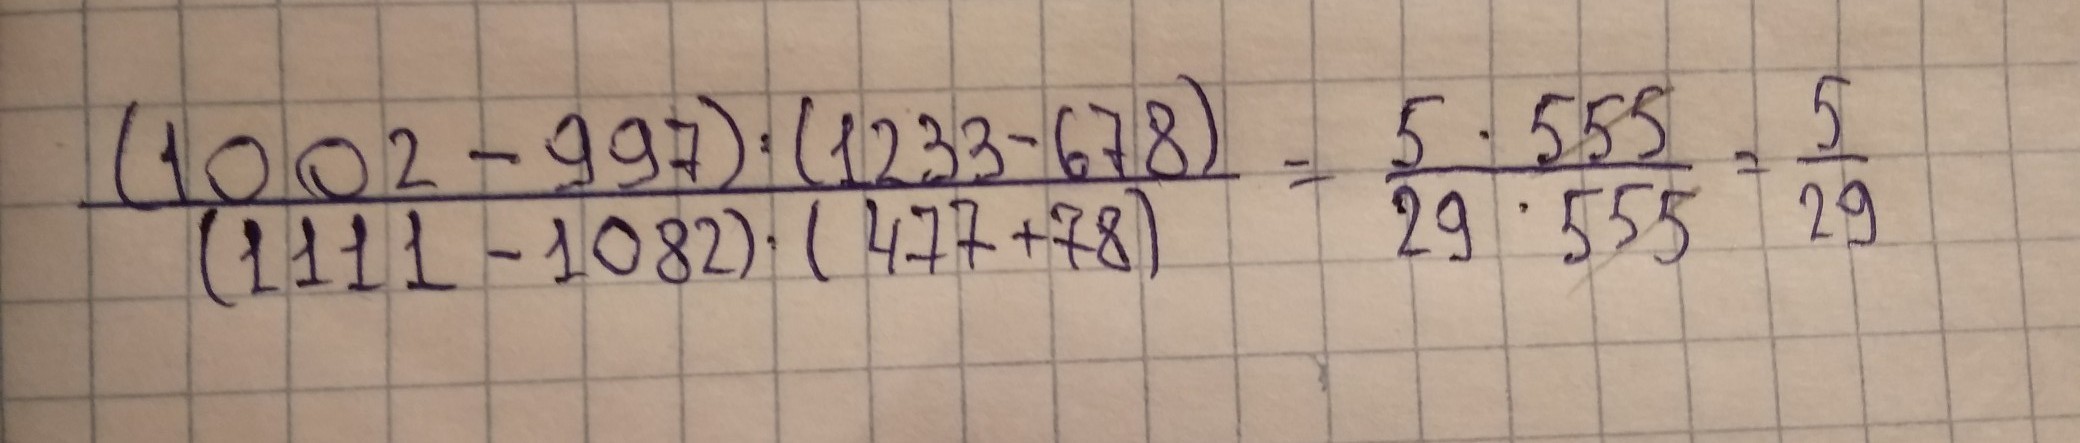 (1002 - 997) · (1233 - 678) / (1111 - 1082) · (477 + 78) = 5 · 555 / 29 · 555 = 5 / 29